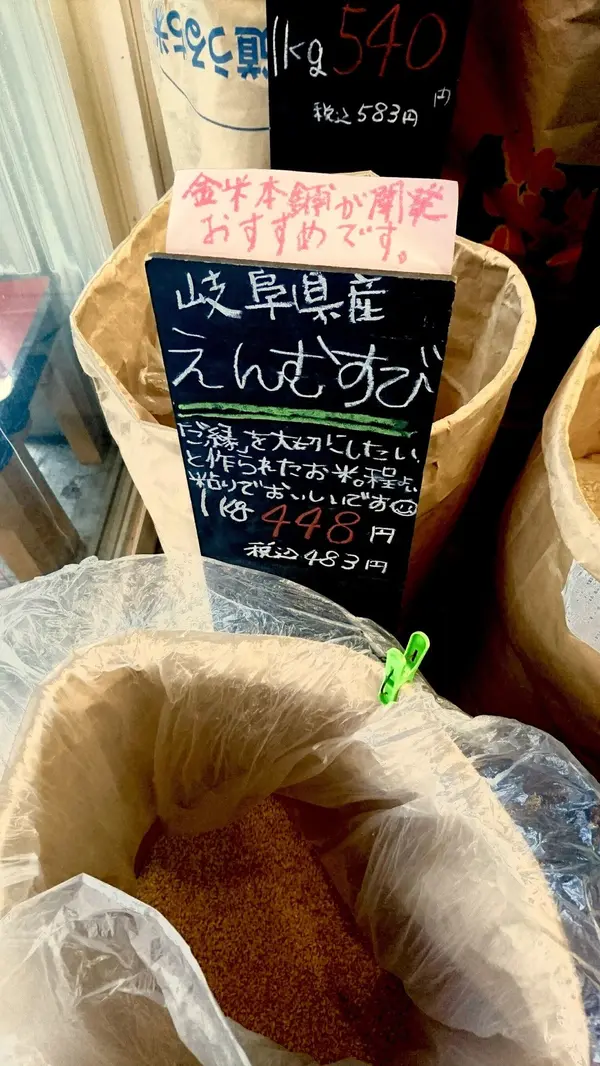 道うるち米
1kg 540
円
税込583円
金米本舗が開発
おすすめです。
岐阜県産
えんむすび
「ご縁」を大切にしたい
と作られたお米。程よい
粘りでおいしいです
1kg 448円
税込483円